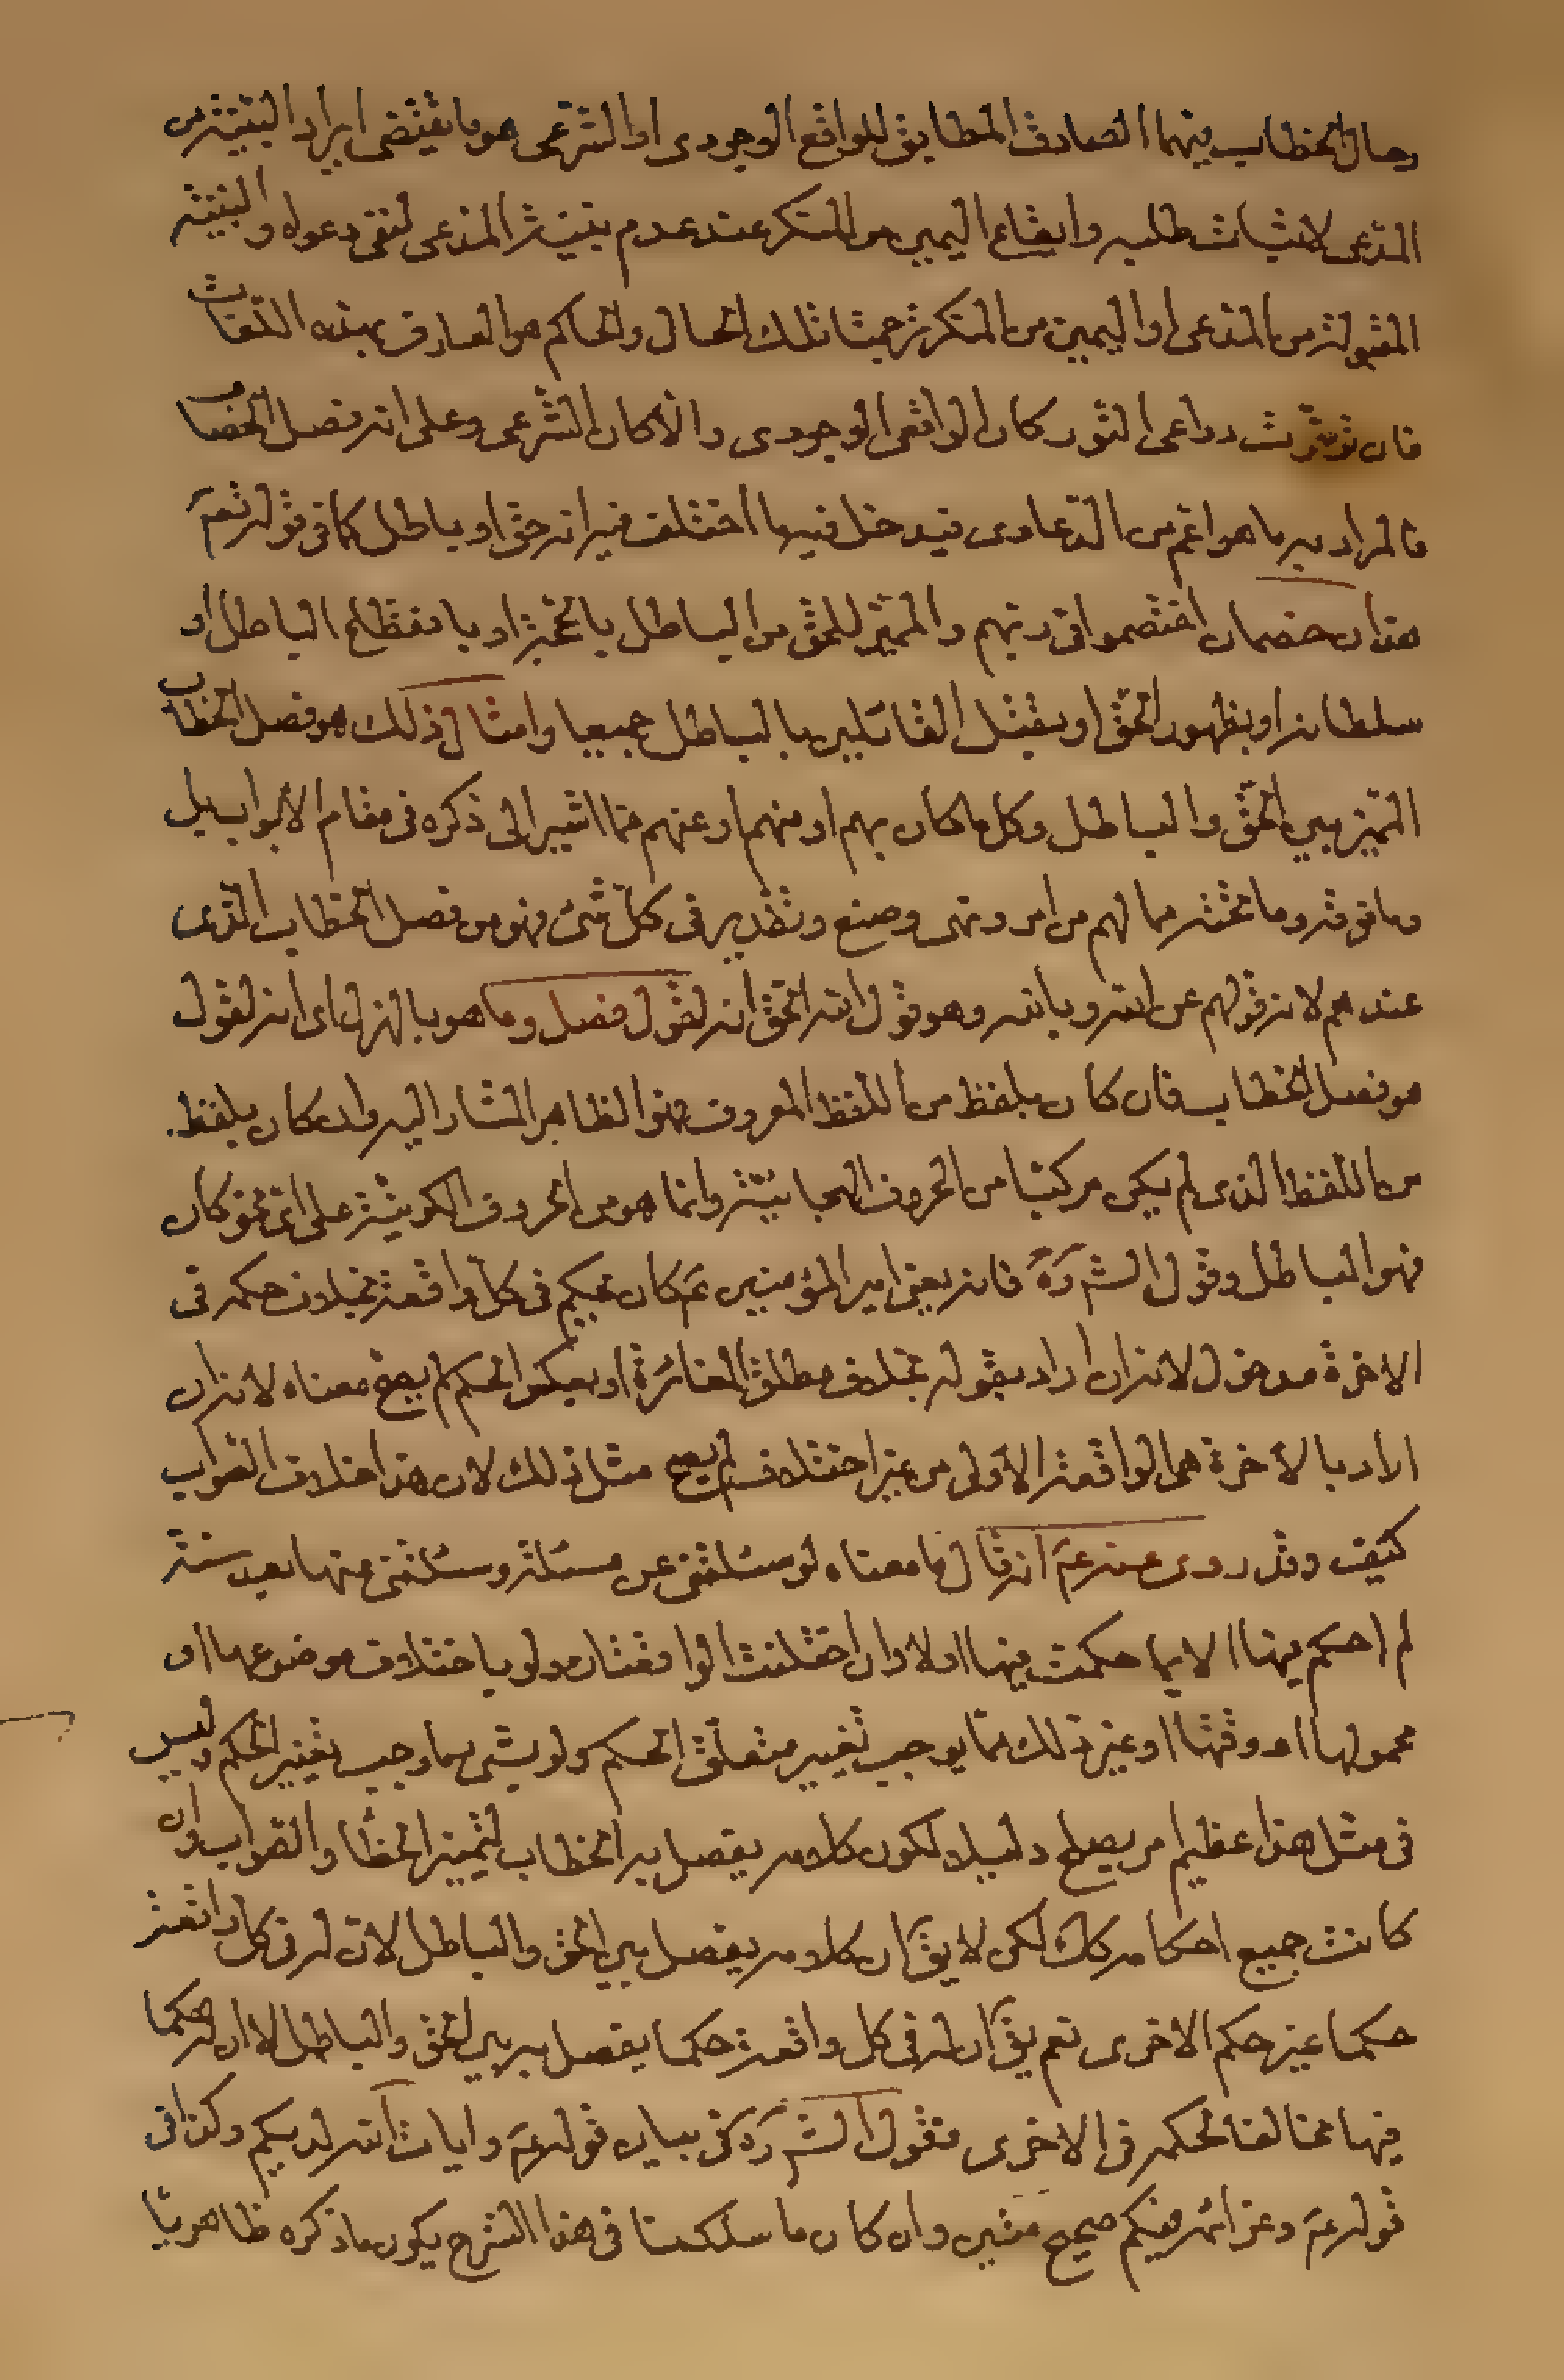 وحال الخطاب بينهما الصادق المطابق للواقع الوجودى او الشرعى هو ما يقتضى ايراد البيّنة من
المدّعى لاثبات طلبه وايقاع اليمين من المنكر عند عدم بيّنة المدعى لنفى دعواه والبيّنة
المقبولة من المدعى او اليمين من المنكر ترجمتا تلك الحال والحاكم هو العارف بهذه اللغات
فان توفّرت دواعى النور كان الواقعى الوجودى والا كان الشرعى وعلى انه فصل الخصاب
فالمراد به ما هو اعم من الدعاوى فيدخل فيها اختلف فيه انه حق او باطل كما فى قوله تعم
هذان خصمان اختصموا فى ربهم والمميّز للحق من الباطل بالحجّة او بانقطاع الباطل او
سلطانه او بظهور الحق او بقتل القائلين بالباطل جميعا وامثال ذلك هو فصل الخطاب
المميز بين الحق والباطل وكل ما كان بهم او منهم او عنهم مما اشير الى ذكره فى مقام الابواب بل
وما فوقه وما تحته مما لهم من امر ونهى وصنع وتقدير فى كل شئ فهو من فصل الخطاب الذى
عندهم لانه قولهم عن الله وبالله وهو قول الله الحق انه لقول فصل وما هو بالهزل اى انه لقول
هو فصل الخطاب فان كان بلفظ من اللفظ المعروف فهو الظاهر المشار اليه وان كان بلفظ
من اللفظ الذى لم يكن مركبا من الحروف الهجائيّة وانما هو من الحروف الكونيّة على اى نحو كان
فهو الباطل وقول الشه ره فانه يعنى امير المؤمنين عم كان يحكم فى كل واقعة بخلاف حكمه فى
الاخرة مدخول لانه ان اراد بقوله بخلاف مطلق المغائرة او بعكس الحكم لم يصح معناه لانه ان
اراد بالاخرة هى الواقعة الاولى من غير اختلاف لم يصح مثل ذلك لان هذا خلاف الصّواب
كيف وقد روى عنه عم انه قال ما معناه لو سئلتنى عن مسئلة وسئلتنى عنها بعد سنة
لم احكم فيها الا بما حكمت فيها اولا وان اختلفت الواقعتان ولو باختلاف موضوعها او
محمولها او وقتها او غير ذلك مما يوجب تغيير متعلّق الحكم ولو بشى بما وجب تغيير الحكم وليس
فى مثل هذا عظيم امر يصلح دليلا لكون كلامه يفصل به الخطاب لتمييز الخطأ والصّواب وان
كانت جميع احكامه كك لكن لا يق ان كلامه يفصل بين الحق والباطل لان له فى كل واقعة
حكما غير حكم الاخرى نعم يق ان له فى كل واقعة حكما يفصل به بين الحق والباطل لا ان له حكما
فيها مخالفا لحكمه فى الاخرى فقول الشه ره فى بيان قوله عم وايات الله لديكم وكذا فى
قوله عم وعزائمه فيكم صحيح متين وان كان ما سلكنا فى هذا الشرح يكون ما ذكره ظاهريّا